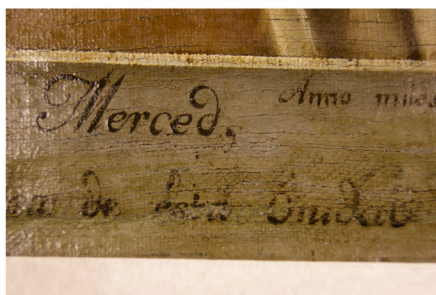 Merced,
Anno miles
de esta Ciudad